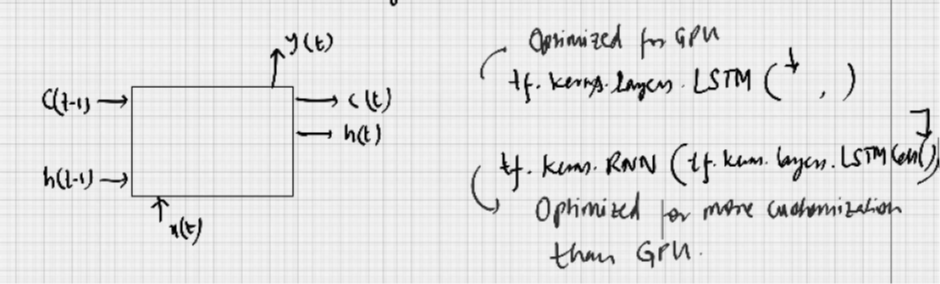 y(t)
C(t-1)
c(t)
h(t)
h(t-1)
x(t)
Optimized for GPU
tf.keras.layers.LSTM ( , )
tf.keras.RNN (tf.keras.layers.LSTMCell()
Optimized for more customization
than GPU.